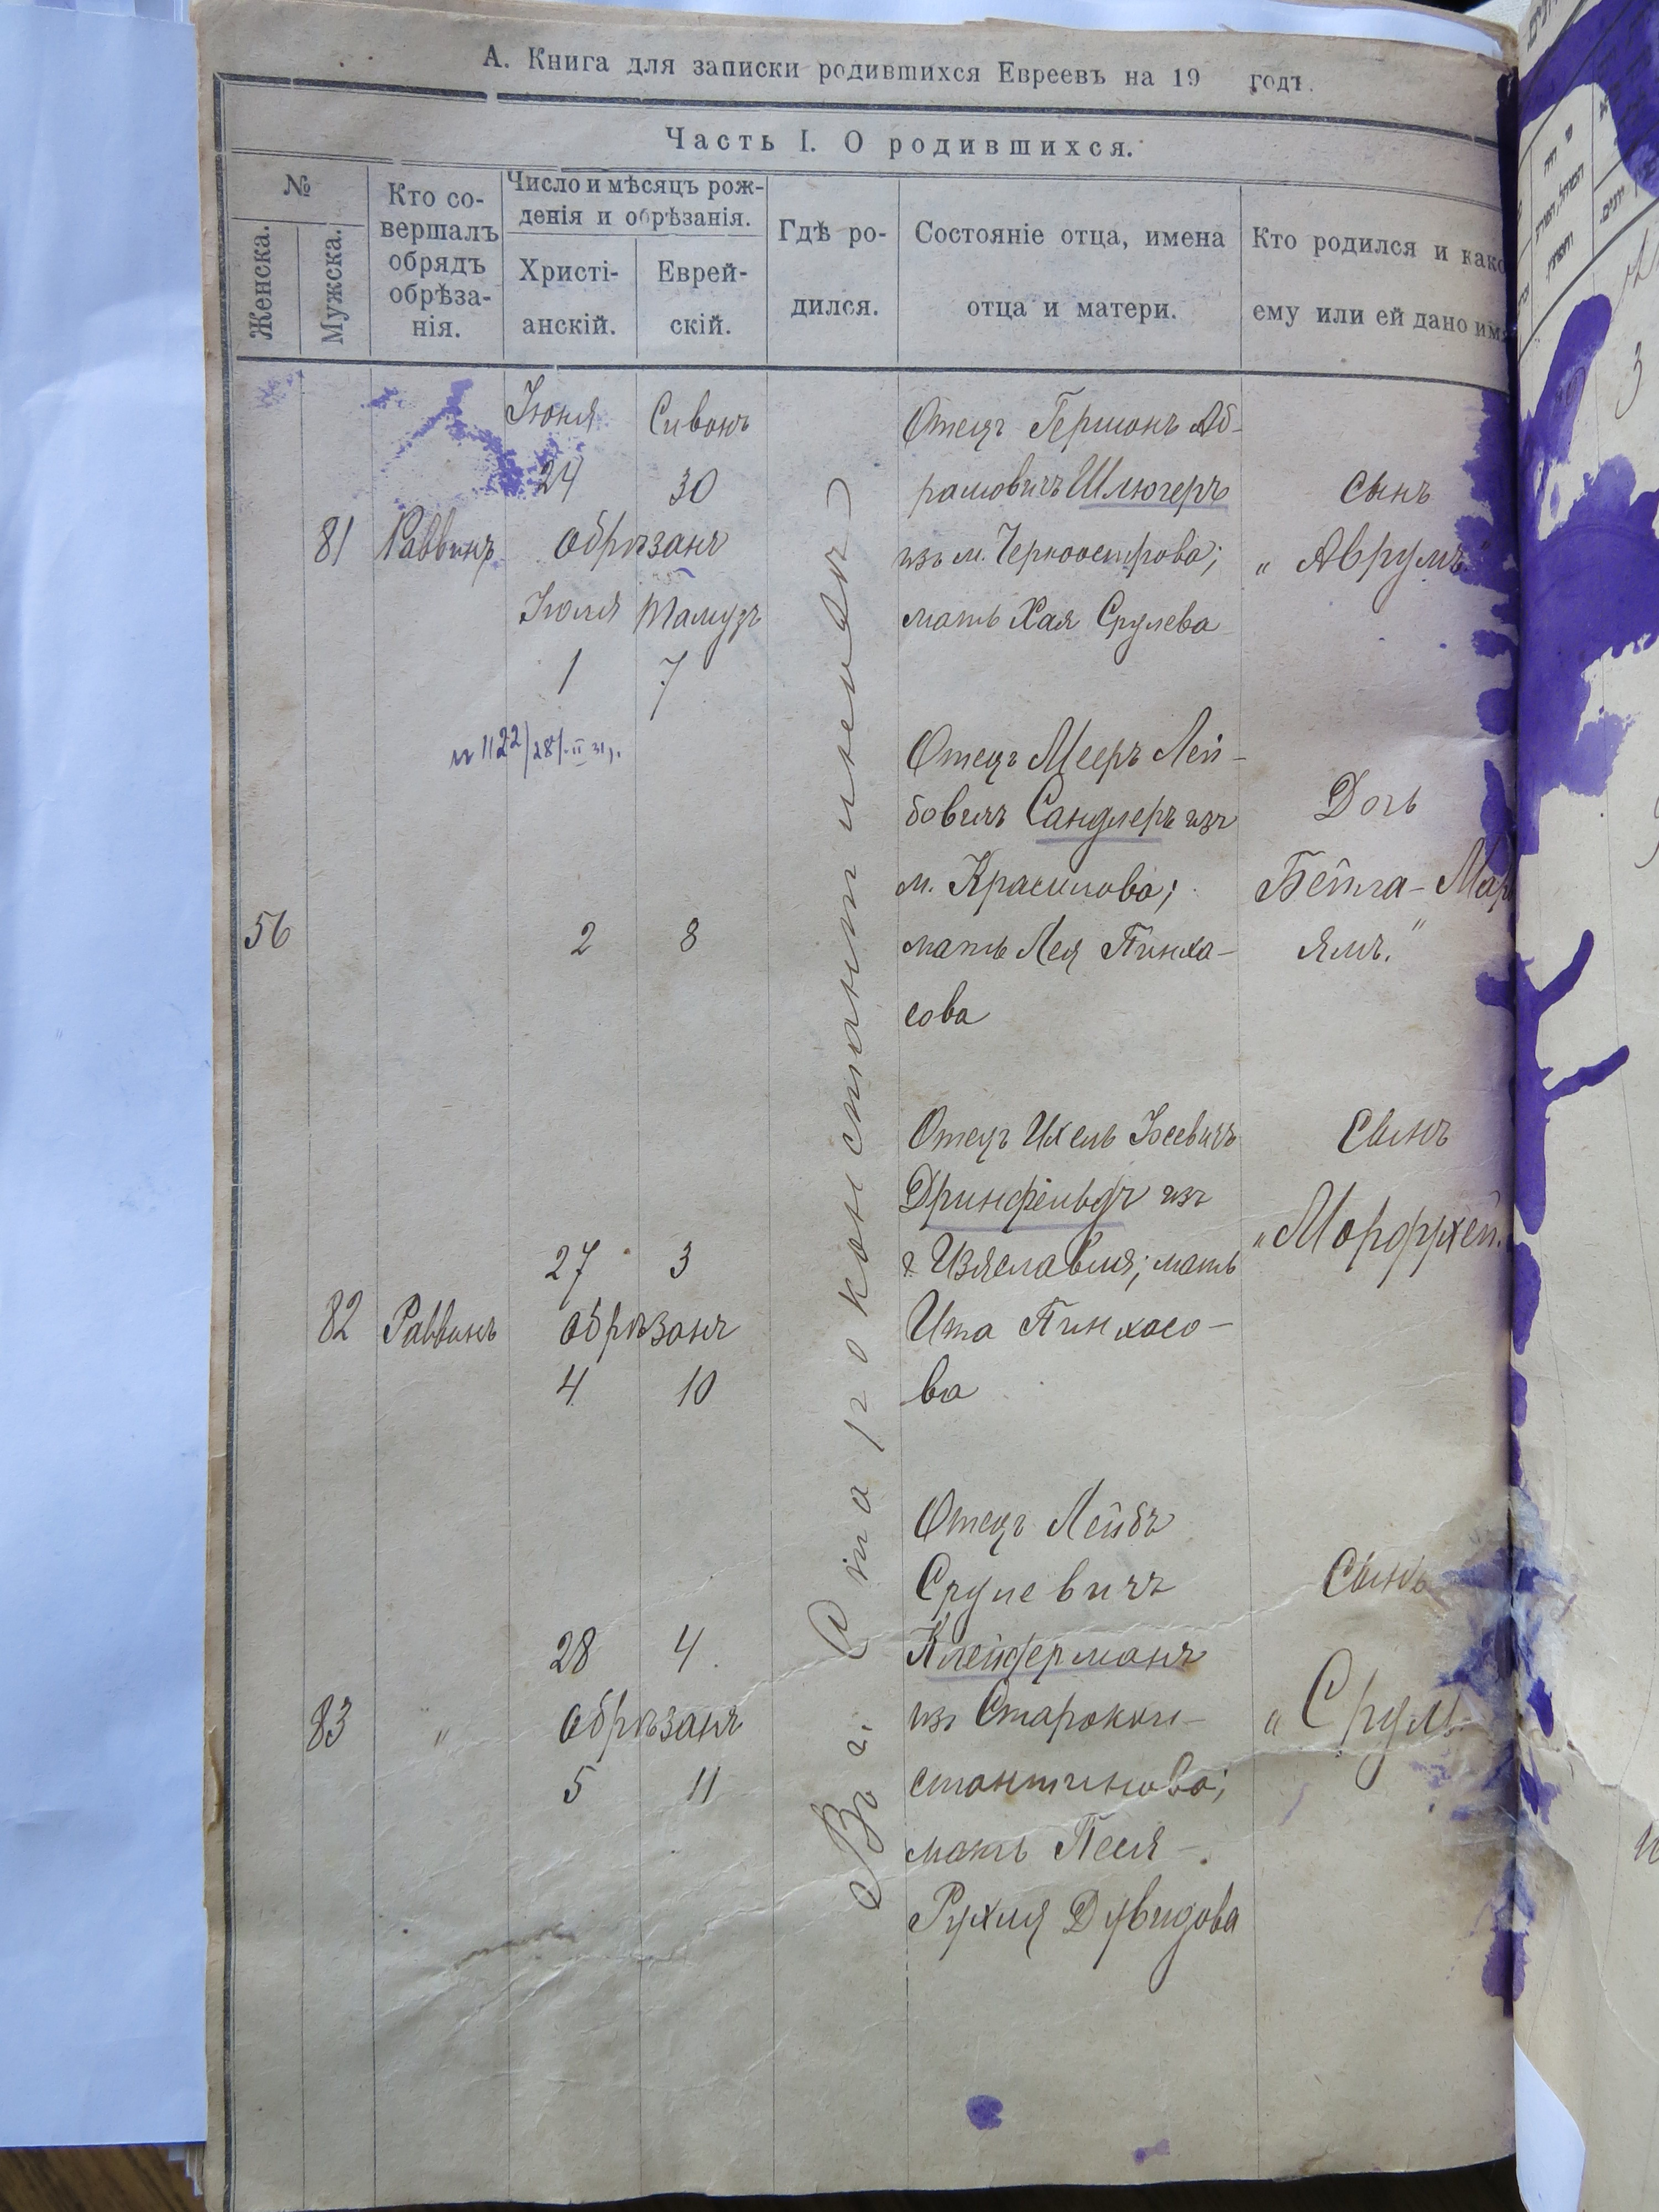 А. Книга для записки родившихся Евреевъ на 19 годъ.
Часть I. О родившихся.
№
Женска.
Мужска.
Кто со-
вершалъ
обрядъ
обрѣза-
нія.
Число и мѣсяцъ рож-
денія и обрѣзанія.
Христі-
анскій.
Еврей-
скій.
Гдѣ ро-
дился.
Состояніе отца, имена
отца и матери.
Кто родился и како
ему или ей дано имя
Въ г. Староконстантиновѣ
81
Раввинъ
Іюня Сивонъ
24 30
обрѣзанъ
Іюля Тамузъ
1 7
Отецъ Гершонъ Аб-
рамовичъ Шлюгеръ
изъ м. Черноострова;
мать Хая Срулева
сынъ
„Аврумъ"
№ 1122/28/-II 31 г.
56
2 8
Отецъ Мееръ Лей-
бовичъ Сандлеръ изъ
м. Красилова;
мать Лея Пинха-
сова
Дочь
Бейла-Мар
ямъ."
82
Раввинъ
27 3
обрѣзанъ
4 10
Отецъ Ихель Іосевичъ
Дринфельдъ изъ
г. Изяславля; мать
Ита Пинхасо-
ва
Сынъ
83
"
28 4
обрѣзанъ
5 11
Отецъ Лейбъ
Срулевичъ
Клейдерманъ
изъ Старокон-
стантинова;
мать Песя-
Рухля Дувидова
Сынъ
„Сруль